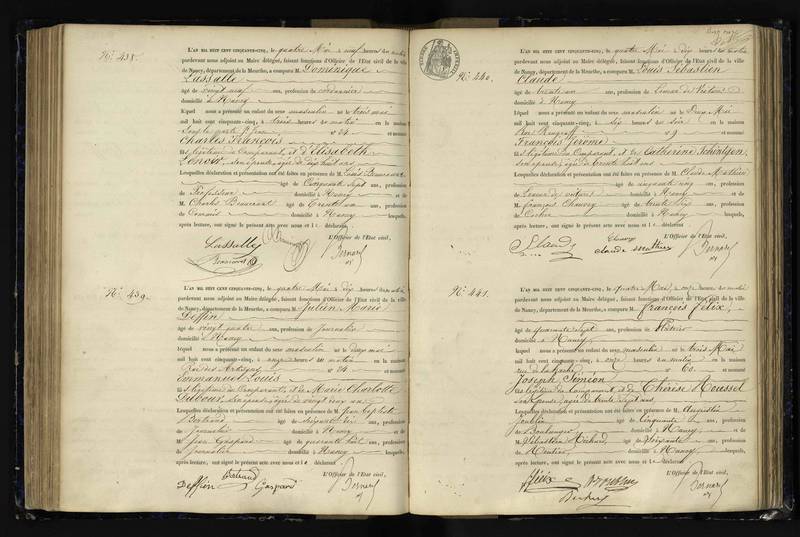 N.° 438.
L'AN MIL HUIT CENT CINQUANTE-CINQ, le quatre Mai à neuf heures du matin
pardevant nous adjoint au Maire délégué, faisant fonctions d'Officier de l'État civil de la ville
de Nancy, département de la Meurthe, a comparu M. Dominique
Lassalle
âgé de vingt neuf ans, profession de cordonnier
domicilié à Nancy
lequel nous a présenté un enfant du sexe masculin né le trois mai
mil huit cent cinquante-cinq, à trois heures du matin en la maison
n° 24 et nommé
Charles François
fils légitime du Comparant, et d'Elisabeth
Lenoir son épouse, âgée de
Lesquelles déclaration et présentation ont été faites en présence de M. Louis
âgé de Cinquante sept ans, profession
de Professeur domicilié à Nancy et de
M. Charles Beaucourt âgé de trente un ans, profession
de Commis domicilié à Nancy lesquels,
après lecture, ont signé le présent acte avec nous et le déclarant
L'Officier de l'État civil,
Lassalle
Bernard
N.° 439.
L'AN MIL HUIT CENT CINQUANTE-CINQ, le quatre Mai à dix heures du matin
pardevant nous adjoint au Maire délégué, faisant fonctions d'Officier de l'État civil de la ville
de Nancy, département de la Meurthe, a comparu M. Julien Marie
Deffin
âgé de vingt quatre ans, profession de Journalier
domicilié à Nancy
lequel nous a présenté un enfant du sexe masculin né le deux mai
mil huit cent cinquante-cinq, à onze heures du matin en la maison
n° 24 et nommé
Emmanuel Louis
fils légitime du Comparant, et de Marie Charlotte
Dubour, son épouse, âgée de vingt deux ans
Lesquelles déclaration et présentation ont été faites en présence de M. Jean Baptiste
Bertrand âgé de soixante dix ans, profession
de Journalier domicilié à Nancy et de
M. Jean Gaspard âgé de quarante huit ans, profession
de Journalier domicilié à Nancy lesquels,
après lecture, ont signé le présent acte avec nous et le déclarant
L'Officier de l'État civil,
Deffin Bertrand Gaspard
Bernard
N.° 440.
L'AN MIL HUIT CENT CINQUANTE-CINQ, le quatre Mai à dix heures du matin
pardevant nous adjoint au Maire délégué, faisant fonctions d'Officier de l'État civil de la ville
de Nancy, département de la Meurthe, a comparu M. Louis Sébastien
Claude
âgé de trente un ans, profession de Loueur de Voitures
domicilié à Nancy
lequel nous a présenté un enfant du sexe masculin né le Deux Mai
mil huit cent cinquante-cinq, à six heures du soir en la maison
n° 9 et nommé
François Jérome
fils légitime du Comparant, et de Catherine
son épouse âgée de trente huit ans
Lesquelles déclaration et présentation ont été faites en présence de M. Claude Mathieu
âgé de cinquante cinq ans, profession
de Loueur de voitures domicilié à Nancy et de
M. François Chauvry âgé de trente six ans, profession
de Cocher domicilié à Nancy lesquels,
après lecture, ont signé le présent acte avec nous et le déclarant
L'Officier de l'État civil,
Claude Mathieu
Bernard
N.° 441.
L'AN MIL HUIT CENT CINQUANTE-CINQ, le quatre Mai, à onze heures du matin
pardevant nous adjoint au Maire délégué, faisant fonctions d'Officier de l'État civil de la ville
de Nancy, département de la Meurthe, a comparu M. François Félix,
âgé de quarante sept ans, profession de
domicilié à Nancy
lequel nous a présenté un enfant du sexe masculin né le trois Mai
mil huit cent cinquante-cinq, à onze heures du matin en la maison
n° 60. et nommé
Joseph Siméon
fils légitime du Comparant, et de Thérèse Roussel
son épouse âgée de trente sept ans
Lesquelles déclaration et présentation ont été faites en présence de M. Augustin
âgé de Cinquante ans, profession
de Boulanger domicilié à Nancy et de
M. Sébastien Richard âgé de soixante ans, profession
de Rentier domicilié à Nancy lesquels,
après lecture, ont signé le présent acte avec nous et le déclarant
L'Officier de l'État civil,
Félix
Bernard